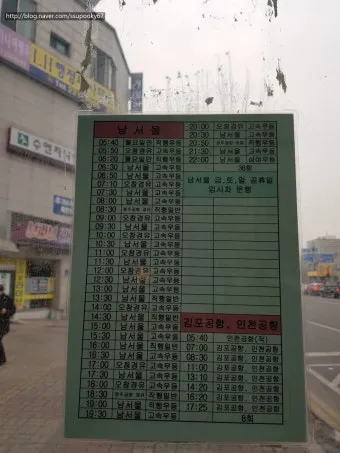 http://blog.naver.com/ssupooky67
남서울
05:40 월요일만 직행우등
05:50 오창경유 고속우등
06:20 월요일만 직행우등
06:30 남서울 고속우등
06:50 남서울 고속우등
07:10 오창경유 고속우등
07:30 남서울 고속우등
08:00 남서울 고속우등
08:30 직행일반
09:00 오창경유 고속우등
09:30 남서울 고속우등
10:00 남서울 고속우등
10:30 오창경유 고속우등
11:00 남서울 고속우등
11:30 남서울 직행일반
12:00 오창경유 고속우등
12:30 남서울 고속우등
13:00 남서울 고속우등
13:30 남서울 직행일반
14:00 오창경유 고속우등
14:30 남서울 고속우등
15:00 남서울 고속우등
15:30 남서울 직행일반
16:00 남서울 직행일반
16:30 남서울 고속우등
17:00 오창경유 고속우등
17:30 남서울 고속우등
18:00 오창경유 고속우등
18:30 직행일반
19:00 남서울 직행우등
19:30 남서울 고속우등
20:00 오창경유 고속우등
20:30 남서울 고속우등
20:50 직행일반
21:30 남서울 고속우등
22:00 남서울 심야우등
36회
남서울 금,토,일 공휴일
임시차 운행
김포공항, 인천공항
05:40 인천공항(직)
07:00 김포공항, 인천공항
08:30 김포공항, 인천공항
11:00 김포공항, 인천공항
13:10 김포공항, 인천공항
14:20 김포공항, 인천공항
16:20 김포공항, 인천공항
17:25 김포공항, 인천공항
8회